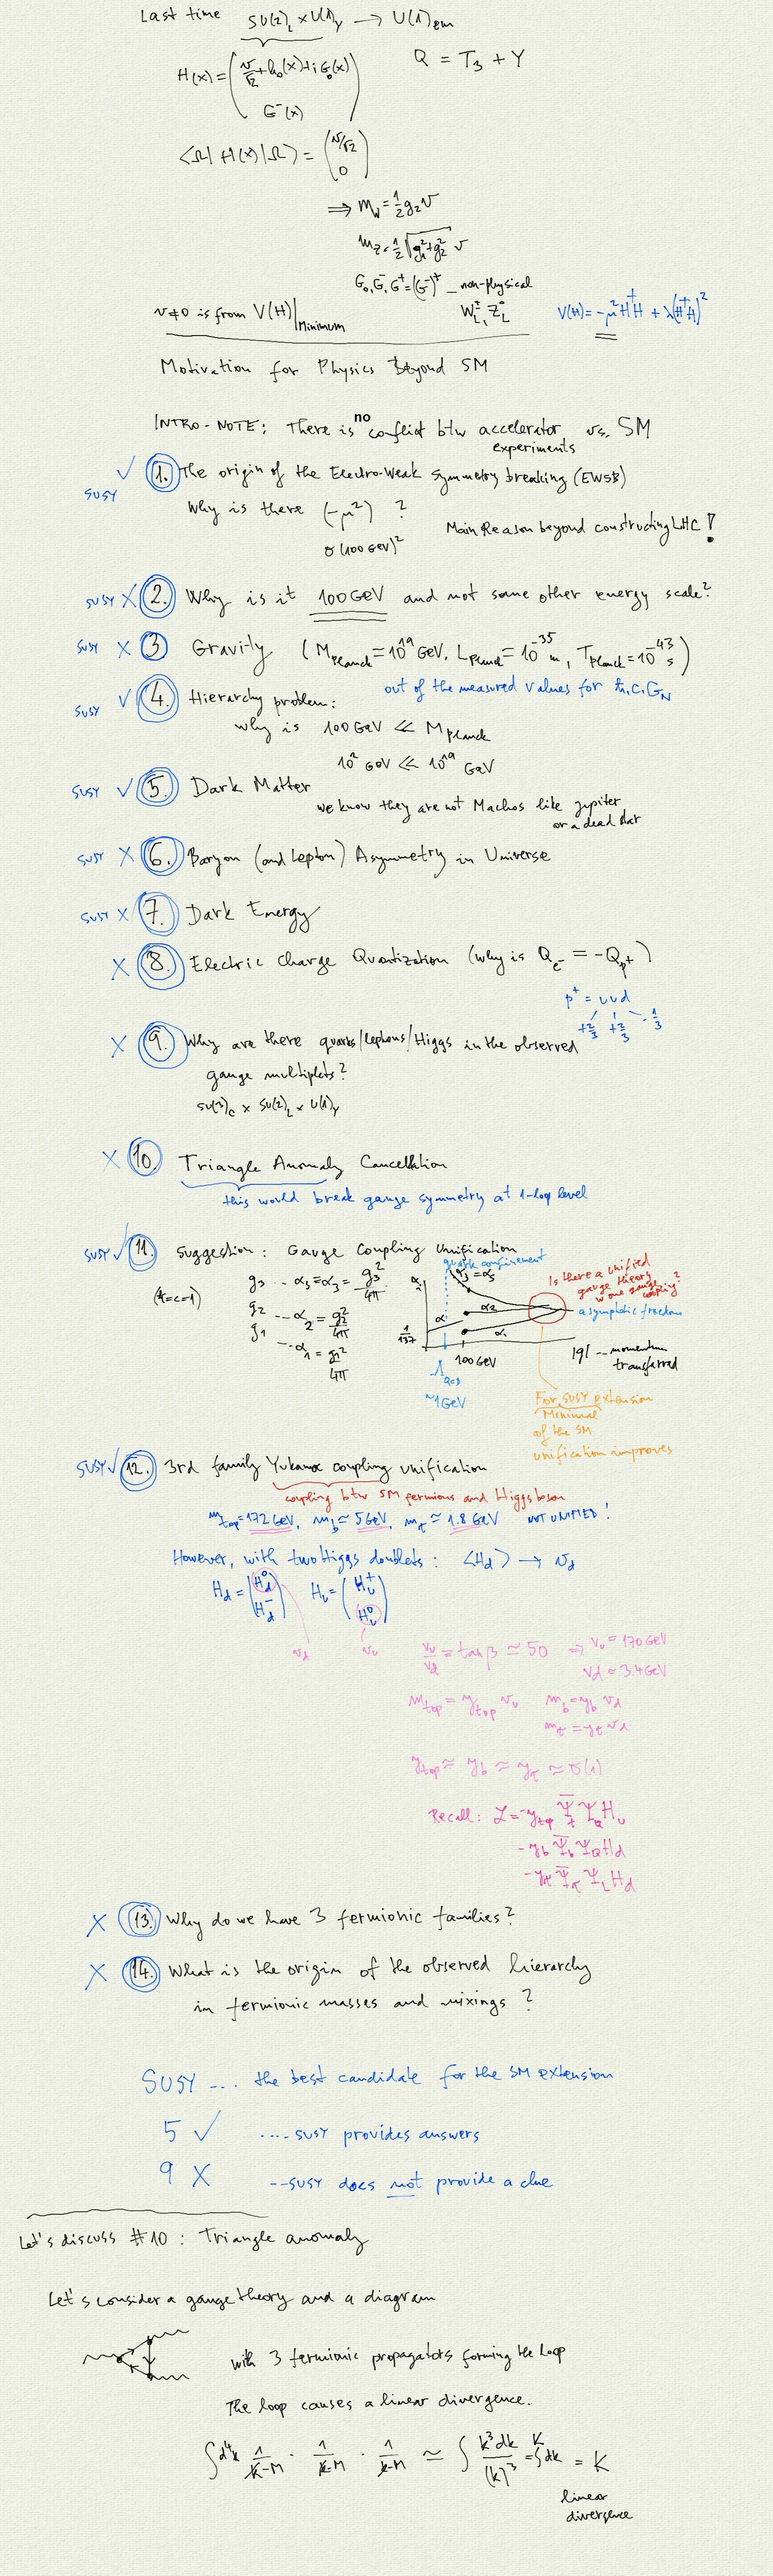 Last time SU(2)_L × U(1)_Y → U(1)_em
H(x) = ( v/√2 + h_0(x) + i G_0(x) Q = T_3 + Y
G^-(x) )
<Ω| H(x) |Ω> = ( v/√2
0 )
⇒ M_W = 1/2 g_2 v
M_Z = 1/2 √(g_1^2 + g_2^2) v
G_0, G^-, G^+ = (G^-)^† – non-physical
v ≠ 0 is from V(H)|Minimum W_L^±, Z_L^0 V(H) = -μ^2 H^†H + λ(H^†H)^2
Motivation for Physics Beyond SM
INTRO-NOTE: There is no conflict btw accelerator vs. SM
experiments
✓ 1. The origin of the Electro-Weak symmetry breaking (EWSB)
SUSY
Why is there (-μ^2) ?
Main Reason beyond constructing LHC!
O(100 GeV)^2
SUSY X 2. Why is it 100 GeV and not some other energy scale?
SUSY X 3 Gravity (M_Planck = 10^19 GeV, L_Planck = 10^-35 m, T_Planck = 10^-43 s)
out of the measured values for ħ, c, G_N
SUSY ✓ 4. Hierarchy problem:
why is 100 GeV ≪ M_Planck
10^2 GeV ≪ 10^19 GeV
SUSY ✓ 5. Dark Matter
we know they are not Machos like jupiter
or a dead star
SUSY X 6. Baryon (and Lepton) Asymmetry in Universe
SUSY X 7. Dark Energy
X 8. Electric Charge Quantization (why is Q_e- = -Q_p+)
p^+ = uud
+2/3 +2/3 -1/3
X 9. Why are there quarks/leptons/Higgs in the observed
gauge multiplets?
SU(3)_C × SU(2)_L × U(1)_Y
X 10. Triangle Anomaly Cancellation
this would break gauge symmetry at 1-loop level
SUSY ✓ 11. Suggestion: Gauge Coupling Unification
quark confinement
(ħ=c=1)
g_3 -- α_s = α_3 = g_3^2/4π
g_2 -- α_2 = g_2^2/4π
g_1 -- α_1 = g_1^2/4π
α_i
α_3 = α_s
α_2
α
α_1
1/137
Is there a unified
gauge theory
w one gauge
coupling?
asymptotic freedom
100 GeV
|q| -- momentum
transferred
Λ_QCD
~1 GeV
For SUSY extension
Minimal
of the SM
unification improves
SUSY ✓ 12. 3rd family Yukawa coupling unification
coupling btw SM fermions and Higgs boson
m_top = 172 GeV, m_b ≃ 5 GeV, m_τ ≃ 1.8 GeV NOT UNIFIED!
However, with two Higgs doublets: <H_d> → v_d
H_d = ( H_d^0
H_d^- ) H_u = ( H_u^+
H_u^0 )
v_d v_u
v_u/v_d = tanβ ≃ 50 ⇒ v_u = 170 GeV
v_d ≃ 3.4 GeV
m_top = y_top v_u m_b = y_b v_d
m_τ = y_τ v_d
y_top ≈ y_b ≈ y_τ ≈ O(1)
Recall: L = -y_top Ψ̄_t Ψ_Q H_u
-y_b Ψ̄_b Ψ_Q H_d
-y_τ Ψ̄_τ Ψ_L H_d
X 13. Why do we have 3 fermionic families?
X 14. What is the origin of the observed hierarchy
in fermionic masses and mixings?
SUSY ... the best candidate for the SM extension
5 ✓ .... SUSY provides answers
9 X -- SUSY does not provide a clue
Let's discuss #10: Triangle anomaly
Let's consider a gauge theory and a diagram
with 3 fermionic propagators forming the loop
The loop causes a linear divergence.
∫d^4k 1/(k̸-M) · 1/(k̸-M) · 1/(k̸-M) ≃ ∫ k^3 dk/(k)^3 = ∫^K dk = K
linear
divergence